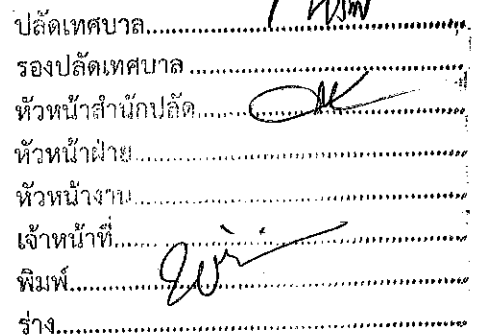 ปลัดเทศบาล
รองปลัดเทศบาล
หัวหน้าสำนักปลัด
หัวหน้าฝ่าย
หัวหน้างาน
เจ้าหน้าที่
พิมพ์
ร่าง